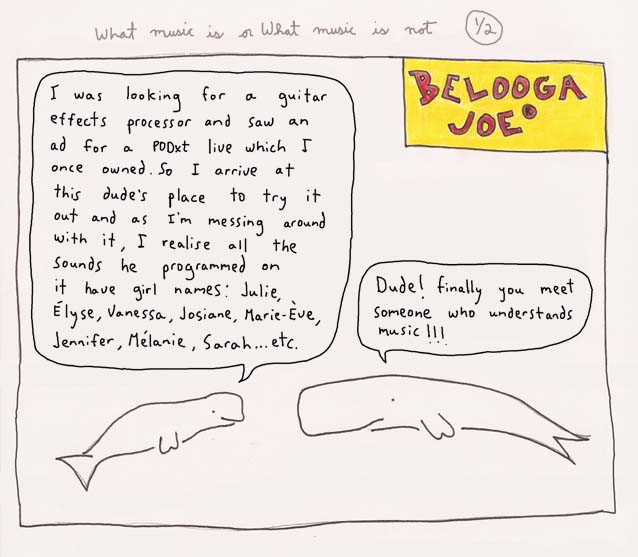 What music is or What music is not 1/2
BELOOGA
JOE®
I was looking for a guitar
effects processor and saw an
ad for a PODxt live which I
once owned. So I arrive at
this dude's place to try it
out and as I'm messing around
with it, I realise all the
sounds he programmed on
it have girl names: Julie,
Élyse, Vanessa, Josiane, Marie-Ève,
Jennifer, Mélanie, Sarah...etc.
Dude! finally you meet
someone who understands
music!!!